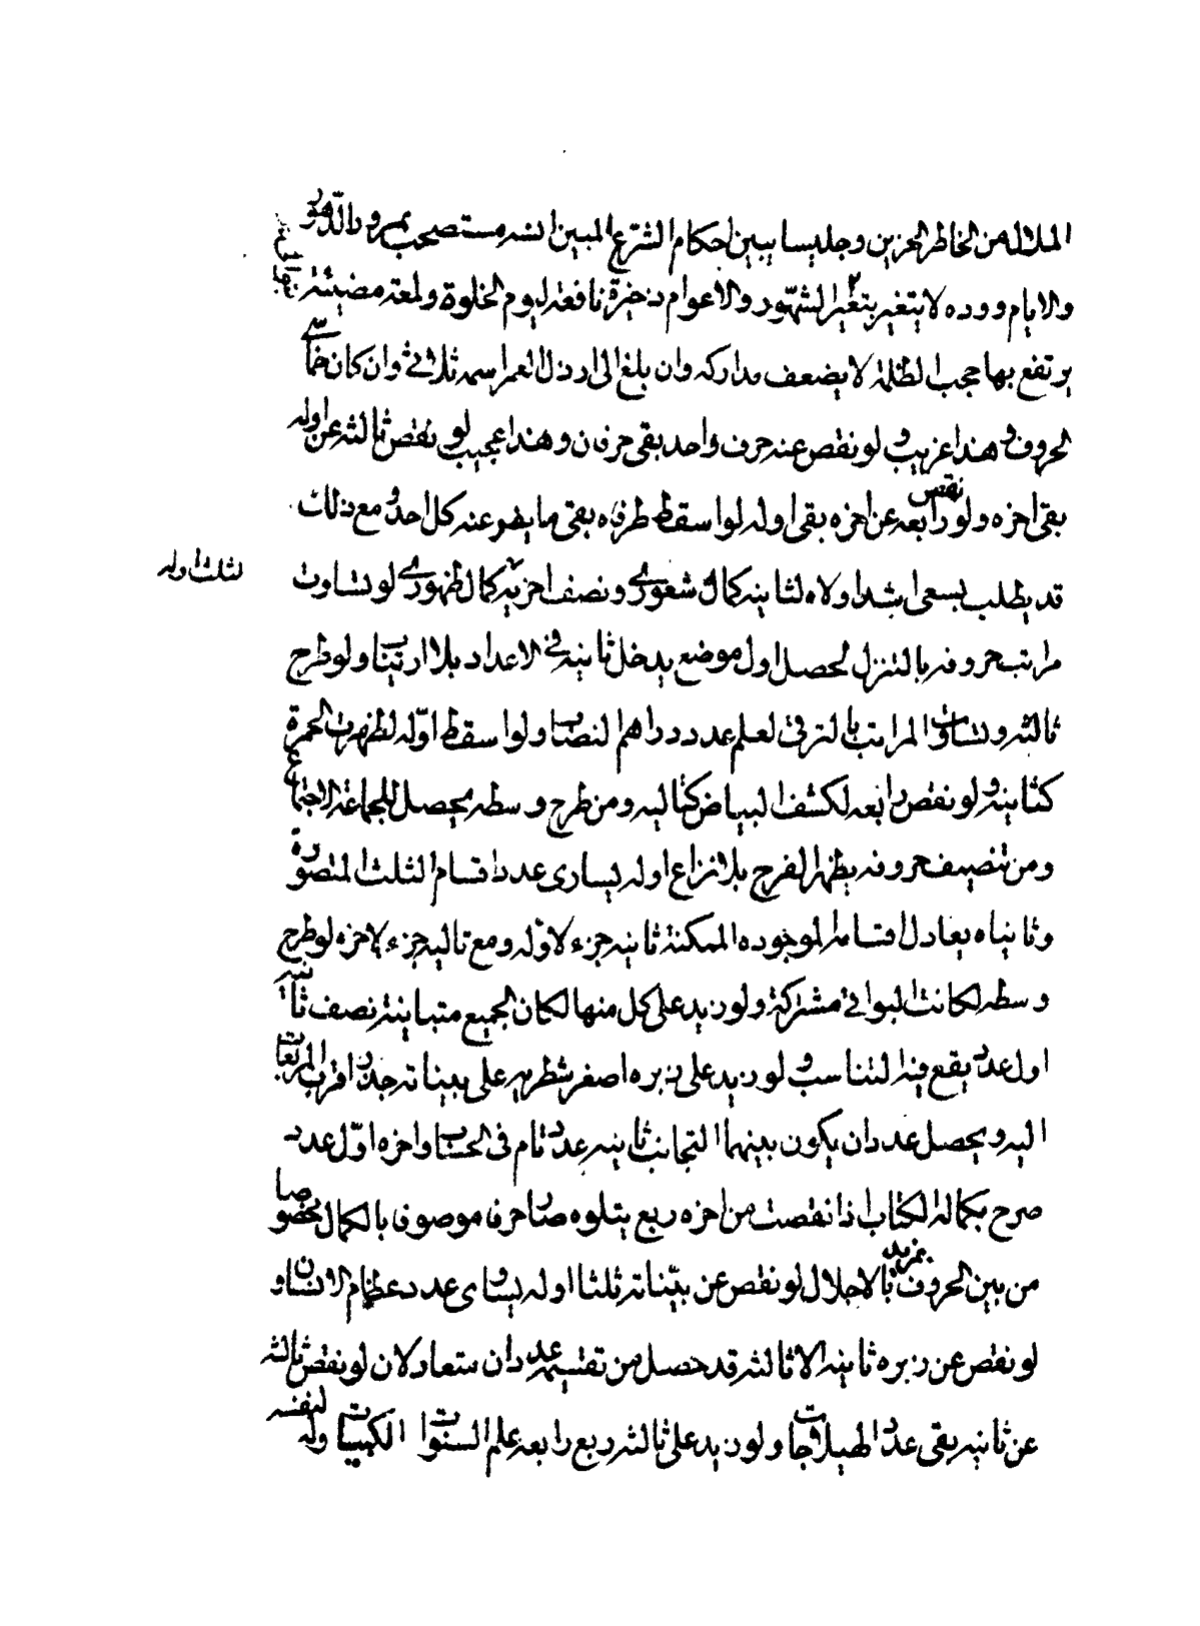 الملال من الخاطر الحزين وجليسا يبين احكام الشرع المبين انسه مستصحب بمرور الدهور
والايام ووده لا يتغير بتغير الشهور والاعوام ذخيرة نافعة ليوم الخلوة ولمعة مضيئة
يرتفع بها حجب الظلمة لا يضعف مداركه وان بلغ الى ارذل العمر اسمه ثلاثي وان كان خماسي
الحروف وهذا غريب ولو نقص عنه حرف واحد بقى حرفان وهذا عجيب لو نقص ثالثه عن اوله
بقى اخره ولو نقص رابعه عن اخره بقى اوله لو اسقط طرفاه بقى ما يفر عنه كل احد ومع ذلك
قد يطلب بسعى اشد اولاه لثانيه كمال شعورى ونصف اخريه كمال ظهورى لو تساوت
لثلث اوله
مراتب حروفه بالتنزل لحصل اول موضع يدخل ثانيه في الاعداد بلا ارتياب ولو طرح
ثالثه وتساوت المراتب بالترقى لعلم عدد دراهم النصاب ولو اسقط اوله لظهرت الحمرة
كثانيه ولو نقص رابعه لكشف البياض كتاليه ومن طرح وسطه يحصل للجماعة الاجتماع
ومن تنصيف حروفه يظهر الفرج بلا نزاع اوله يساوى عدد اقسام الثلث المتصورة
وثانياه يعادل اقسامه الموجوده الممكنة ثانيه جزء لاوله ومع تاليه جزء لاخره لو طرح
وسطه لكانت البواقي مشتركة ولو زيد على كل منها لكان الجميع متباينة نصف ثانيه
اول عدد يقع فيه التناسب ولو زيد على زبره اصغر شطريه على بيناته جذر اقرب المربعات
اليه ويحصل عددان يكون بينهما التجانب ثانيه عدد تام فى الحساب واخره اول عدد
صرح بكماله الكتاب اذا نقصت من اخره ربع يتلوه صار حرفا موصوفا بالكمال مخصوصا
من بين الحروف بمزيد الاجلال لو نقص عن بيناته ثلثا اوله يساوى عدد عظام الانسان و
لو نقص عن زبره ثانيه الا ثالثه قد حصل من تقسيمه عددان متعادلان لو نقص ثالثه
عن ثانيه بقى عدد الهيلاجات ولو زيد على ثالثه ربع رابعه علم السنوات الكبيسات وله لنفسه